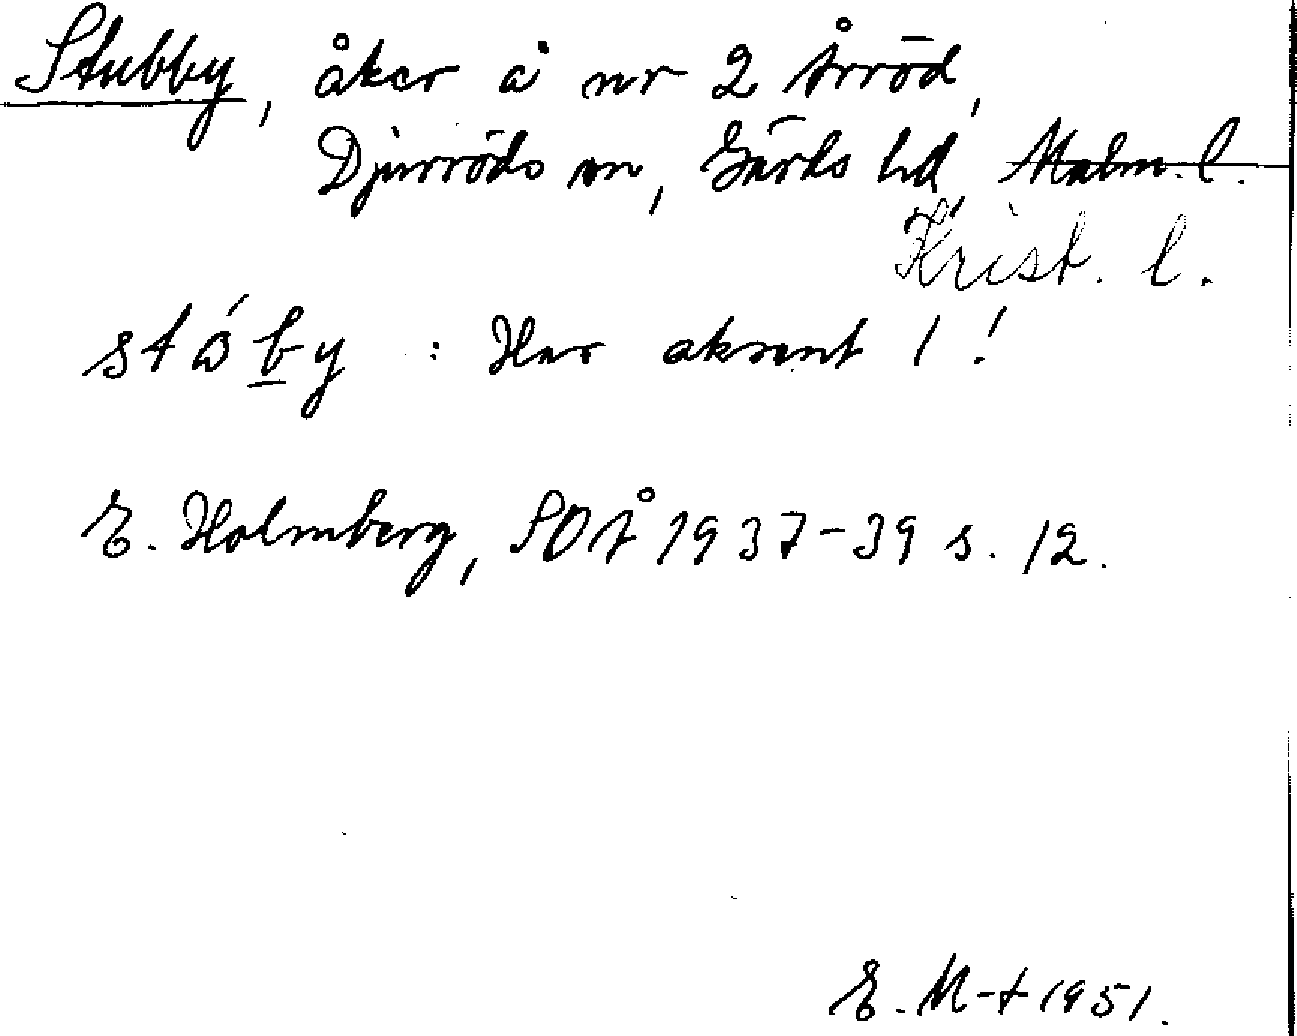 Stubby, åker å nr 2 Årröd,
Djurröds sn, Gärds hd, Malm. l.
Krist. l.
stáby : Har aksent 1!
E. Holmberg, SOÅ 1937-39 s. 12.
E. M-t 1951.